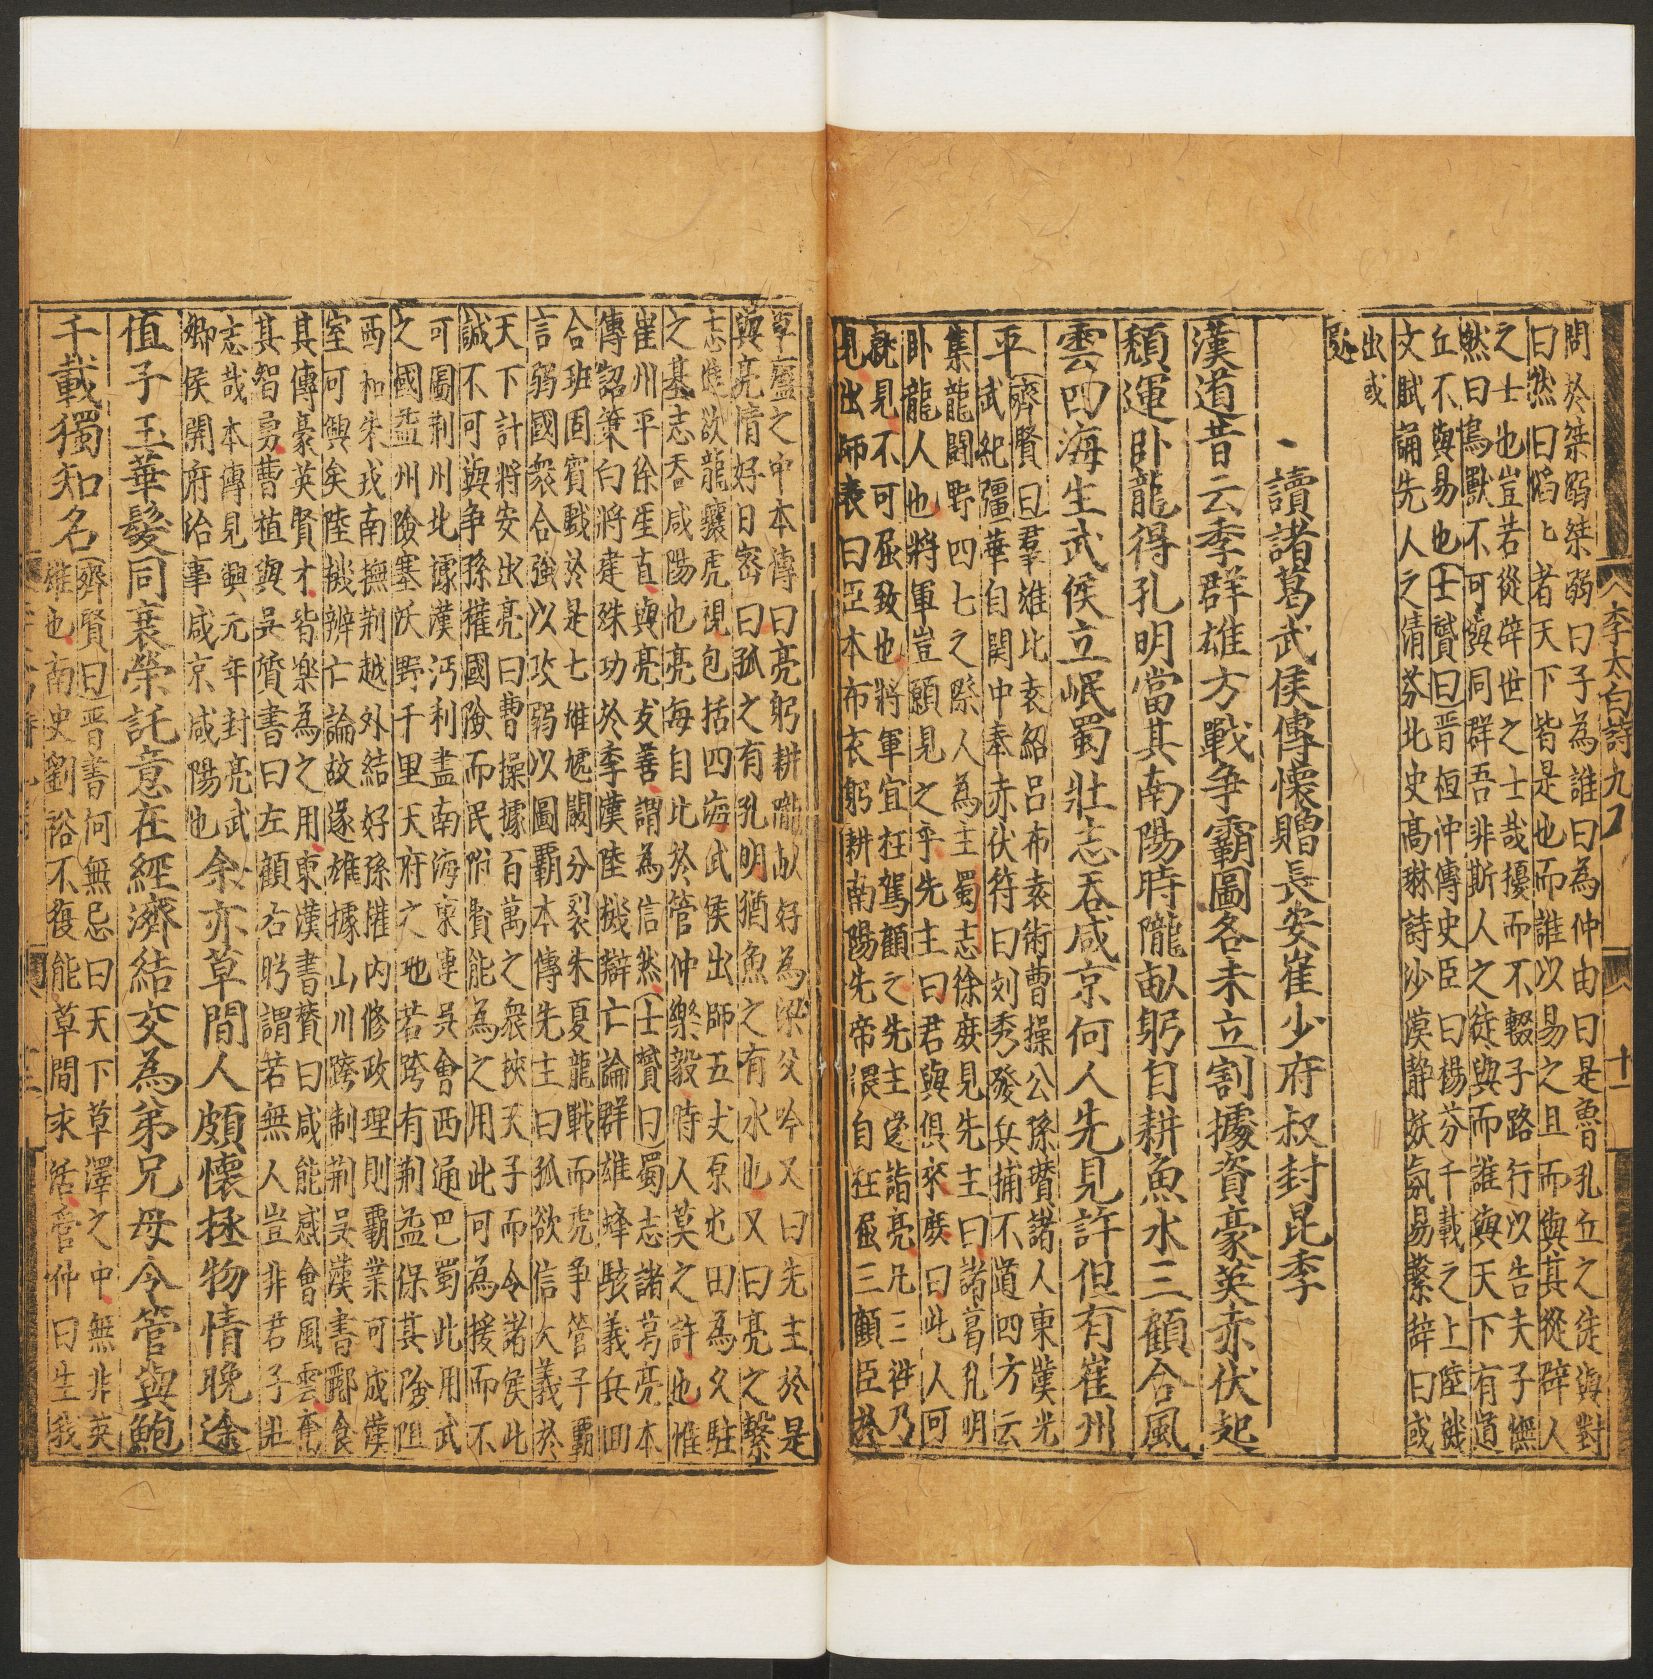 李太白詩九
十一
問於桀溺桀溺曰子為誰曰為仲由曰是魯孔丘之徒與對
曰然曰滔匕者天下皆是也而誰以易之且而與其從辟人
之士也豈若從辟世之士哉擾而不輟子路行以告夫子憮
然曰鳥獸不可與同群吾非斯人之徒與而誰與天下有道
丘不與易也士贇曰晋桓沖傳史臣曰楊芬千載之上陸機
文賦誦先人之清芬北史高琳詩沙漠静妖氛易繫辞曰或
出或
處
讀諸葛武侯傳懷贈長安崔少府叔封昆季
漢道昔云季群雄方戰争霸圖各未立割據資豪英赤伏起
頹運卧龍得孔明當其南陽時隴畝躬自耕魚水三顧合風
雲四海生武侯立岷蜀壯志吞咸京何人先見許但有崔州
平齊賢曰羣雄比袁紹吕布袁術曹操公孫瓚諸人東漢光
武紀彊華自関中奉赤伏符曰刘秀發兵捕不道四方云
集龍闘野四七之際人為主蜀志徐庻見先主曰諸葛孔明
卧龍人也將軍豈願見之乎先主曰君與俱來庻曰此人可
就見不可屈致也將軍宜枉駕顧之先主遂詣亮凡三徃乃
見出師表曰臣本布衣躬耕南陽先帝猥自枉屈三顧臣於
草廬之中本傳曰亮躬耕隴畝好為梁父吟又曰先主於是
與亮情好日宻曰孤之有孔明猶魚之有水也又曰亮之繋
志進欲龍驤虎視包括四海武侯出師五丈原屯田為久駐
之基志吞咸陽也亮每自比於管仲樂毅時人莫之許也惟
崔州平徐庻直與亮友善謂為信然士贇曰蜀志諸葛亮本
傳詔䇿曰將建殊功於季漢陸機辯亡論群雄蜂駭義兵四
合班固賓戱於是七雄虓闞分裂朱夏龍戰而虎争管子霸
言弱國衆合強以攻弱以圖霸本傳先主曰孤欲信大義於
天下計將安出亮曰曹操據百萬之衆挾天子而令諸侯此
誠不可與争孫權國險而民附賢能為之用此可為援而不
可圖荆州北據漢沔利盡南海東連吳會西通巴蜀此用武
之國益州險塞沃野千里天府之地若跨有荆益保其險阻
西和朱戎南撫荆越外結好孫權内修政理則霸業可成漢
室可興矣陸機辨亡論故遂雄據山川跨制荆吳漢書酈食
其傳豪英賢才皆樂為之用東漢書贊曰咸能感會風雲奮
其智勇曹植與吳質書曰左顧右眄謂若無人豈非君子壯
志哉本傳見興元年封亮武
郷侯開府治事咸京咸陽也余亦草間人頗懷拯物情晚途
值子玉華髮同衰榮託意在經濟結交為弟兄毋令管與鮑
千載獨知名齊賢曰晋書何無忌曰天下草澤之中無非英
雄也南史劉裕不復能草間求活管仲曰生我